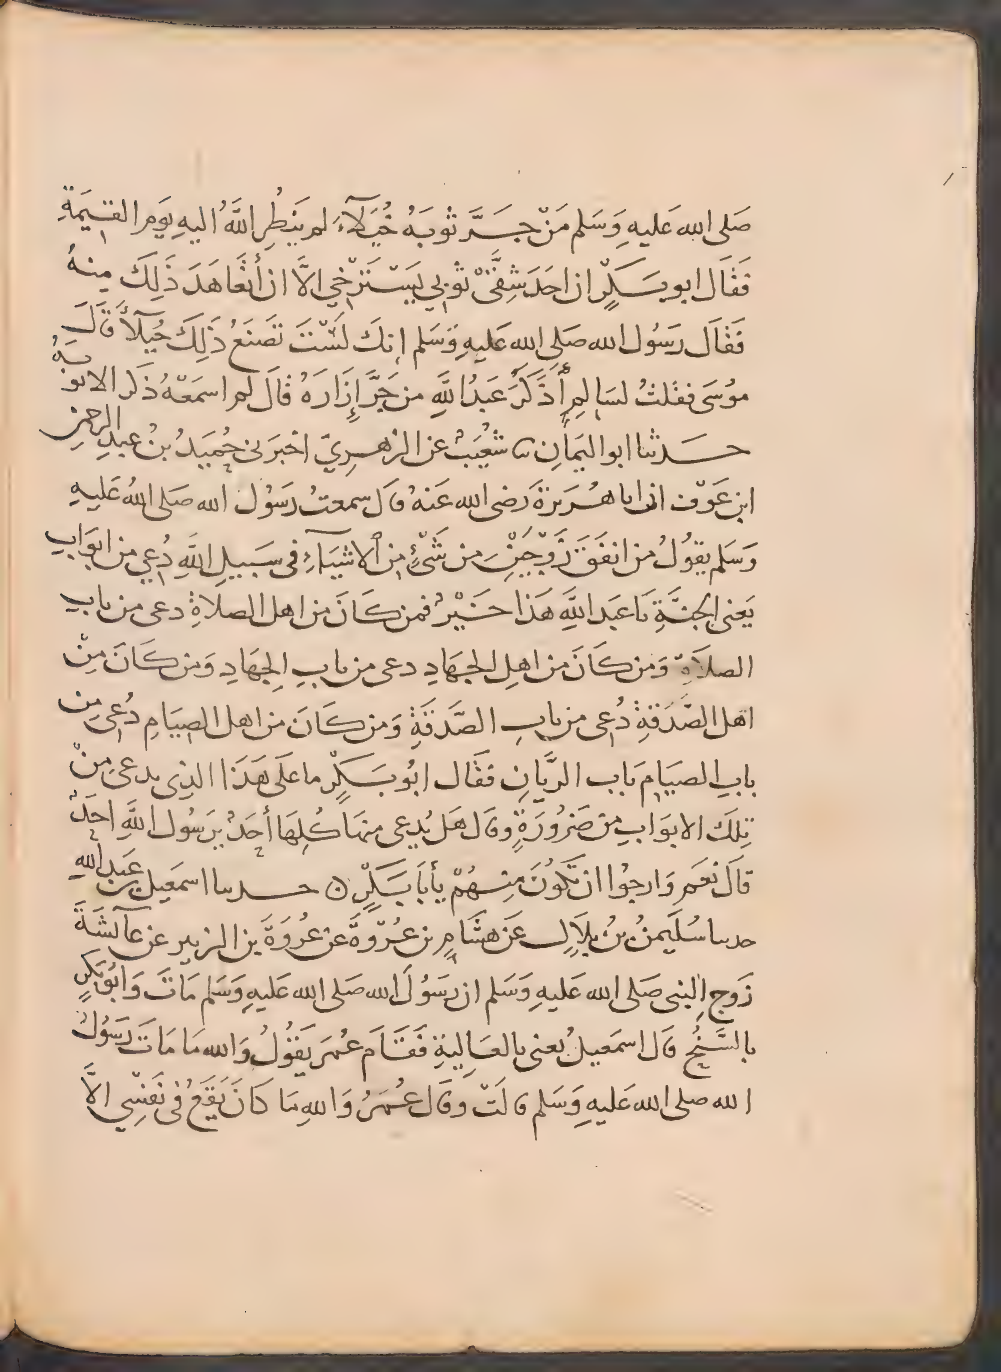 صَلى الله عَليهِ وَسَلم مَنْ جَرَّ ثوبَهُ خُيَلآءَ لم يَنظُرِ اللَّهُ اليهِ يَومَ القيمَةِ
فَقَال ابو بَكرٍ ان احَدَ شِقَّىْ ثوبي يَسْتَرْخِي الاَّ ان أتَعَاهَدَ ذَلِكَ مِنهُ
فَقَالَ رَسُول الله صَلى الله عَليهِ وَسَلم انكَ لَسْتَ تَصنَعُ ذَلِكَ خُيَلآءً قَالَ
موُسَى فقلتُ لسَالِمٍ أَذَكَرَ عَبدُ اللَّهِ من جَرَّ إزَارَهُ قالَ لم اسمَعْهُ ذَكَر الا ثوبَهُ
حَدثنا ابو اليَمَانِ ثنا شعَيْبٌ عن الزهرِيّ اخبرَنى حُمَيدُ بنُ عبدِ الرحمنِ
ابن عَوفٍ ان ابا هُرَيرَةَ رَضى الله عَنهُ قالَ سمعتُ رَسُولَ الله صَلى اللهُ عَليهِ
وَسَلم يقوُلُ من انفَقَ زَوْجَيْنِ من شَىْءٍ من الاشيَاءِ فى سَبيلِ اللَّهِ دُعِي من ابوَابِ
يَعنى الجنَّةِ يَا عَبدَ اللَّهِ هَذا خَيْرٌ فمن كَانَ من اهلِ الصلاةِ دعى من بابِ
الصلاَةِ وَمن كَانَ من اهلِ الجهَادِ دعى من بابِ الجِهَادِ وَمن كَانَ مِنْ
اهل الصَّدَقةِ دُعِى من بابِ الصَّدَقَةِ وَمن كَانَ من اهل الصيَامِ دُعِىَ من
بابِ الصيَامِ بَاب الريَّانِ فقَال ابُو بَكرٍ ما عَلَى هَذَا الذِى يدعَى مِنْ
تِلكَ الابوَابِ مِن ضَرُورَةٍ وقال هَل يُدعى منهَا كُلِهَا أحَدٌ يرَسُول اللَّهِ احَدٌ
قالَ نعَم وَارجوُا ان تكُونَ مِنهُمْ يأبَا بَكرٍ ۝ حدثنا اسمَعيلُ بن عَبدِ اللهِ
حدثنا سُلَيمنُ بنُ بِلاَلٍ عَن هشَامِ بن عُرْوَةَ عن عُروَةَ بن الزبيرِ عن عآئشَةَ
زَوجِ النبى صَلى الله عَليهِ وَسَلم ان رَسُولَ الله صَلى الله عَليهِ وَسَلم مَاتَ وَابُو بَكرٍ
بالسُّنُحِ قال اسمَعيلُ يعنى بالعَاليةِ فَقَامَ عُمَر يَقوُلُ وَالله مَا مَاتَ رَسُولُ
الله صلى الله عَليهِ وَسَلم قالَتْ وَقال عُمَرُ وَاللهِ مَا كَانَ يَقَعُ فى نَفسِي الاَّ